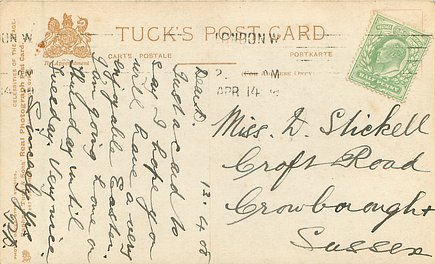 TUCK'S POST CARD
CARTE POSTALE
LONDON W
APR 14
13.4.08
Dear D.
Just a card to
say I hope you
will have a very
enjoyable Easter.
I am going home on
Thursday until
Tuesday. Very nice.
Sincerely yrs
Miss. D. Stickell
Croft Road
Crowborough
Sussex
CELEBRITIES OF THE STAGE.